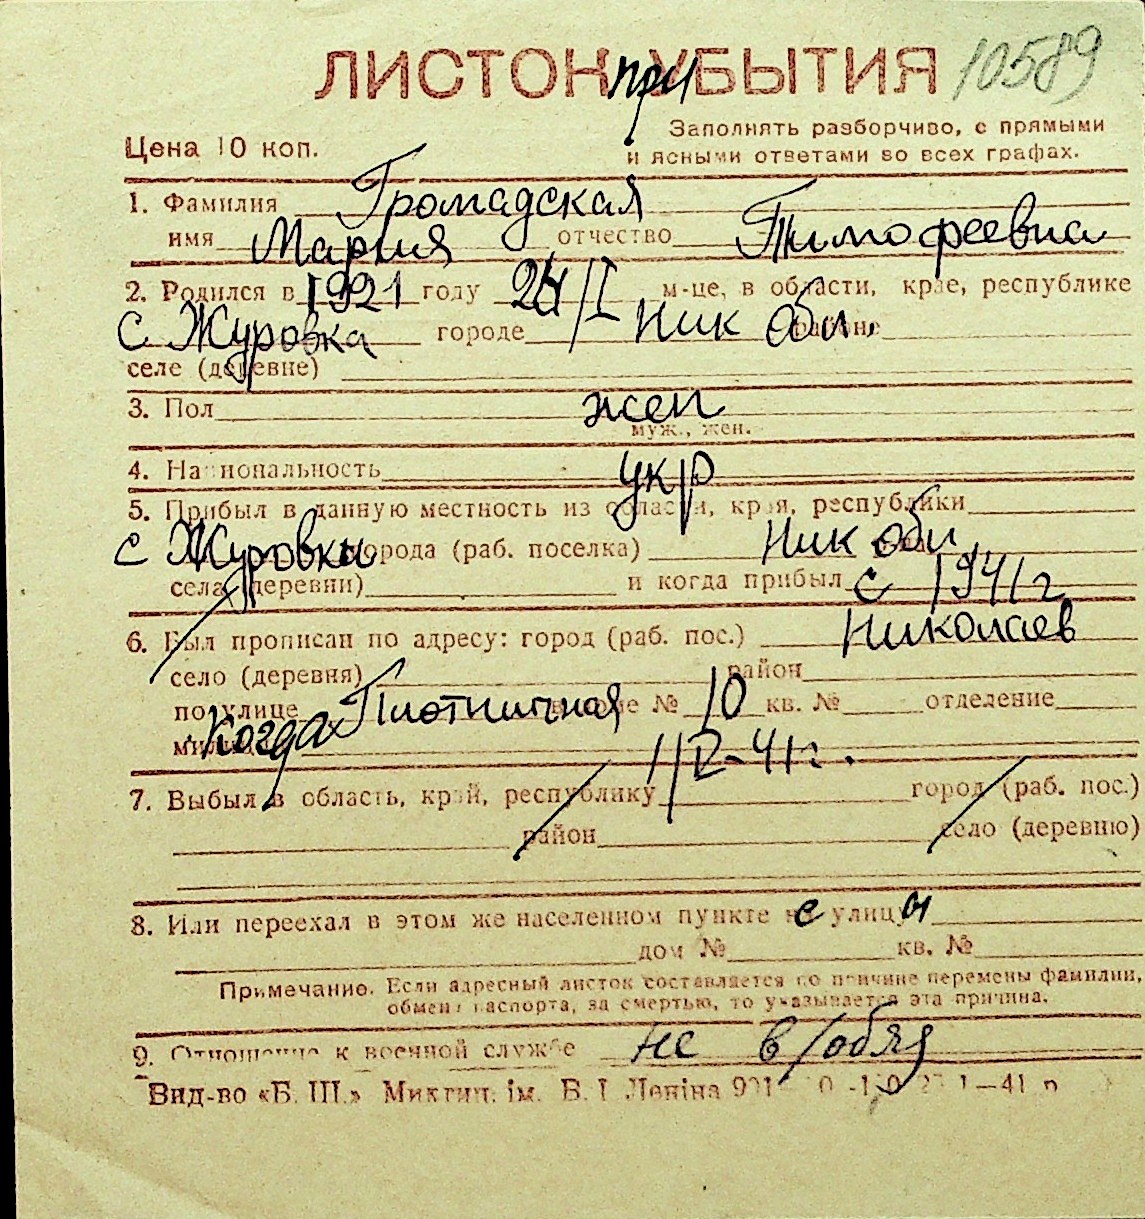 ЛИСТОК приУБЫТИЯ 10589
Цена 10 коп.
Заполнять разборчиво, с прямыми
и ясными ответами во всех графах.
1. Фамилия Громадская
имя Мария отчество Тимофеевна
2. Родился в 1921 году 24/I м-це, в области, крае, республике
с Журовка городе Ник обл. районе
селе (деревне)
3. Пол жен
муж., жен.
4. Национальность укр
5. Прибыл в данную местность из области, края, республики
с Журовки города (раб. поселка) Ник обл.
села (деревни) и когда прибыл с 1941 г
6. Был прописан по адресу: город (раб. пос.) Николаев
село (деревня) район
по улице Плотничная доме № 10 кв. № отделение
милиции Когда 1/IV-41 г.
7. Выбыл в область, край, республику город (раб. пос.)
район село (деревню)
8. Или переехал в этом же населенном пункте с улицы
дом № кв. №
Примечание. Если адресный листок составляется по причине перемены фамилии,
обмена паспорта, за смертью, то указывается эта причина.
9. Отношение к военной службе не в/обяз
Вид-во «Б. Ш.» Миктип. ім. В. І Леніна